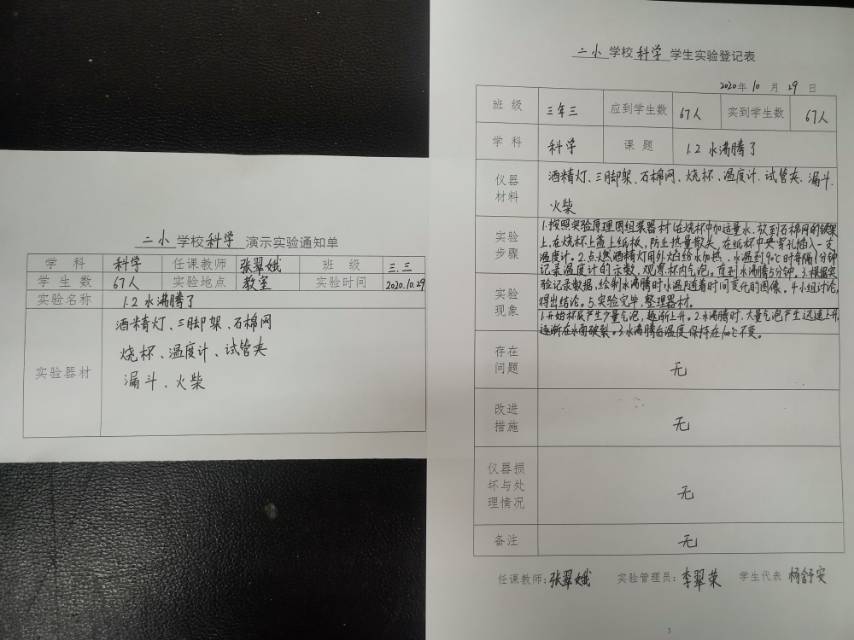 二小学校科学演示实验通知单
学科 科学 任课教师 张翠娥 班级 三.三
学生数 67人 实验地点 教室 实验时间 2020.10.29
实验名称 1.2 水沸腾了
实验器材 酒精灯、三脚架、石棉网
烧杯、温度计、试管夹
漏斗、火柴
二小学校科学学生实验登记表
2020年10月29日
班级 三年三 应到学生数 67人 实到学生数 67人
学科 科学 课题 1.2 水沸腾了
仪器材料 酒精灯、三脚架、石棉网、烧杯、温度计、试管夹、漏斗、
火柴
实验步骤 1.按照实验原理图组装器材(在烧杯中加适量水,放到石棉网的铁架
上,在烧杯上盖上纸板,防止热量散失,在纸板中央穿孔插入一支
温度计。2.点燃酒精灯用外焰给水加热,水温到90℃时每隔1分钟
记录温度计的示数,观察杯内气泡,直到水沸腾5分钟。3.根据实
实验现象 验记录数据,绘制水沸腾时水温随着时间变化的图像。4.小组讨论,
得出结论。5.实验完毕,整理器材。
1.开始杯底产生少量气泡,逐渐上升。2.水沸腾时,大量气泡产生迅速上升
逐渐在水面破裂。3.水沸腾后温度保持在100℃不变。
存在问题 无
改进措施 无
仪器损坏与处理情况 无
备注 无
任课教师:张翠娥 实验管理员:李翠荣 学生代表 杨舒安